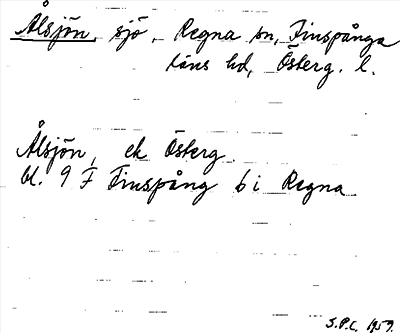 Ålsjön, sjö, Regna sn, Finspånga
läns hd, Österg. l.
Ålsjön, ek Österg.
bl. 9 F Finspång 6 i Regna
S.P.C. 1959.